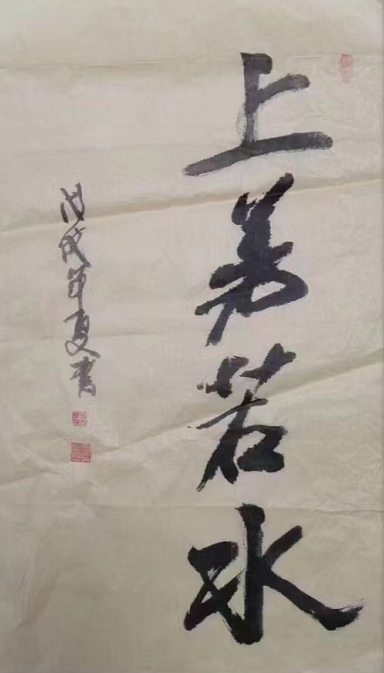 上善若水
戊戌年夏书